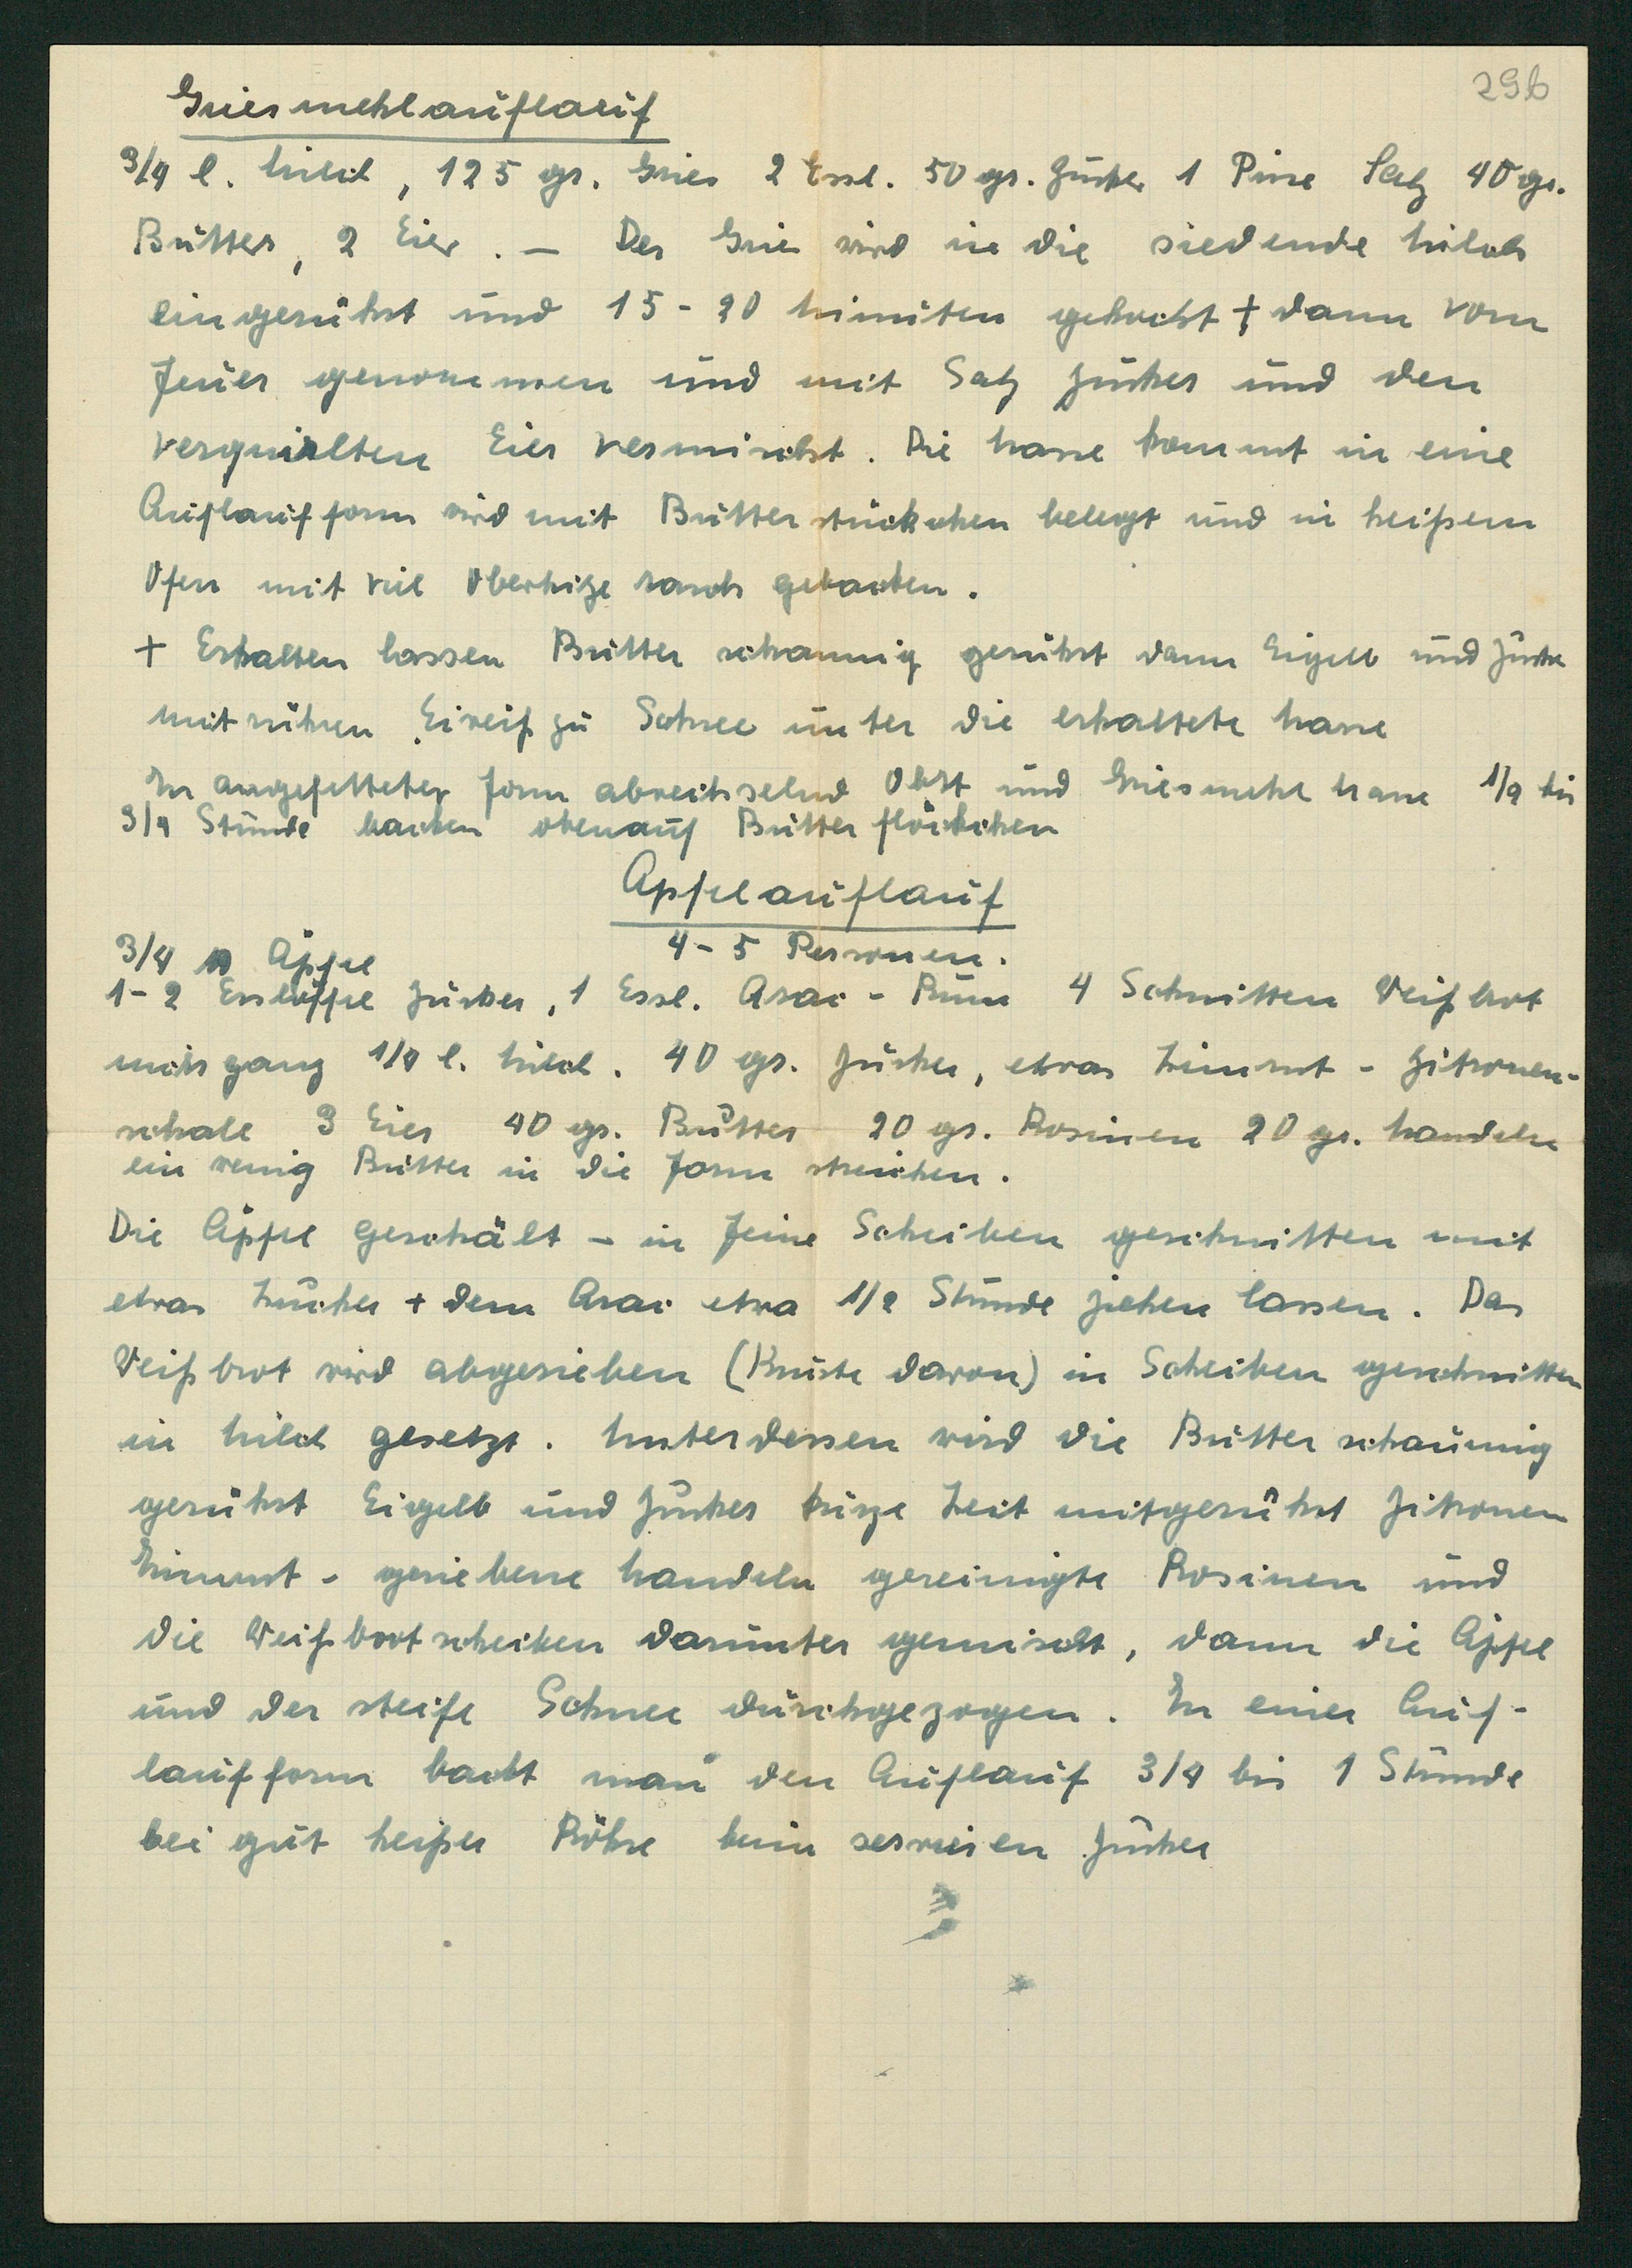 29b
Griesmehlauflauf
3/4 l. Milch, 125 gr. Gries 2 Essl. 50 gr. Zucker 1 Prise Salz 40 gr.
Butter, 2 Eier. — Der Gries wird in die siedende Milch
eingerührt und 15 - 20 Minuten gekocht + dann vom
Feuer genommen und mit Salz Zucker und den
verquirlten Eier vermischt. Die Masse kommt in eine
Auflaufform wird mit Butterstückchen belegt und in heißem
Ofen mit viel Oberhitze rasch gebacken.
+ Erkalten lassen Butter schaumig gerührt dann Eigelb und Zucker
mit rühren Eiweiß zu Schnee unter die erkaltete Masse
In angefetteter Form abwechselnd Obst und Griesmehl Masse 1/2 bis
3/4 Stunde backen obenauf Butterflöckchen
Apfelauflauf
4 - 5 Personen.
3/4 Äpfel
1 - 2 Esslöffel Zucker, 1 Essl. Arac - Rum 4 Schnitten Weißbrot
nicht ganz 1/4 l. Milch. 40 gr. Zucker, etwas Zimmt - Zitronen-
schale 3 Eier 40 gr. Butter 20 gr. Rosinen 20 gr. Mandeln
ein wenig Butter in die Form streichen.
Die Äpfel geschält - in feine Scheiben geschnitten mit
etwas Zucker + dem Arac etwa 1/2 Stunde ziehen lassen. Das
Weißbrot wird abgerieben (Kruste davon) in Scheiben geschnitten
in Milch gesetzt. Unterdessen wird die Butter schaumig
gerührt Eigelb und Zucker kurze Zeit mitgerührt Zitronen
Zimmt - geriebene Mandeln gereinigte Rosinen und
die Weißbrotscheiben darunter gemischt, dann die Äpfel
und der steife Schnee durchgezogen. In einer Auf-
laufform backt man den Auflauf 3/4 bis 1 Stunde
bei gut heißer Röhre beim servieren Zucker